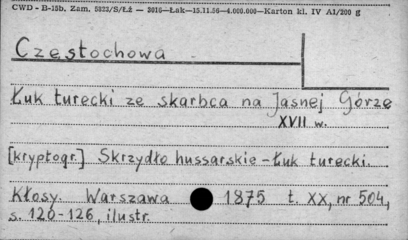 CWD - B-15b, Zam. 5323/S/Łż — 2016—Łuk—15.11.56—4.000.000—Karton kl. IV A1/200 g
Częstochowa
Łuk turecki ze skarbca na Jasnej Górze
XVII w.
[kryptogr.] Skrzydło hussarskie - Łuk turecki.
Kłosy. Warszawa 1875 t. XX, nr 504,
s. 120-126, ilustr.